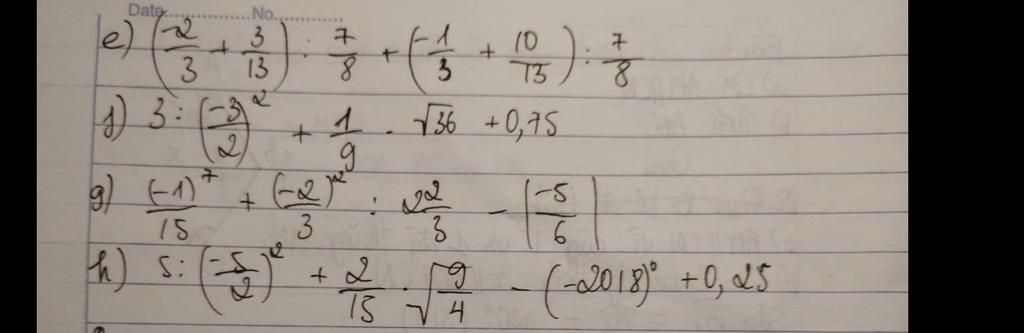 Date ............... No. ...............
e) (-2/3 + 3/13) : 7/8 + (-1/3 + 10/13) : 7/8
f) 3 : (-3/2)² + 1/9 . √36 + 0,75
g) (-1)⁷/15 + (-2)²/3 : 2 2/3 - |-5/6|
h) 5 : (-5/2)² + 2/15 . √9/4 - (-2018)⁰ + 0,25